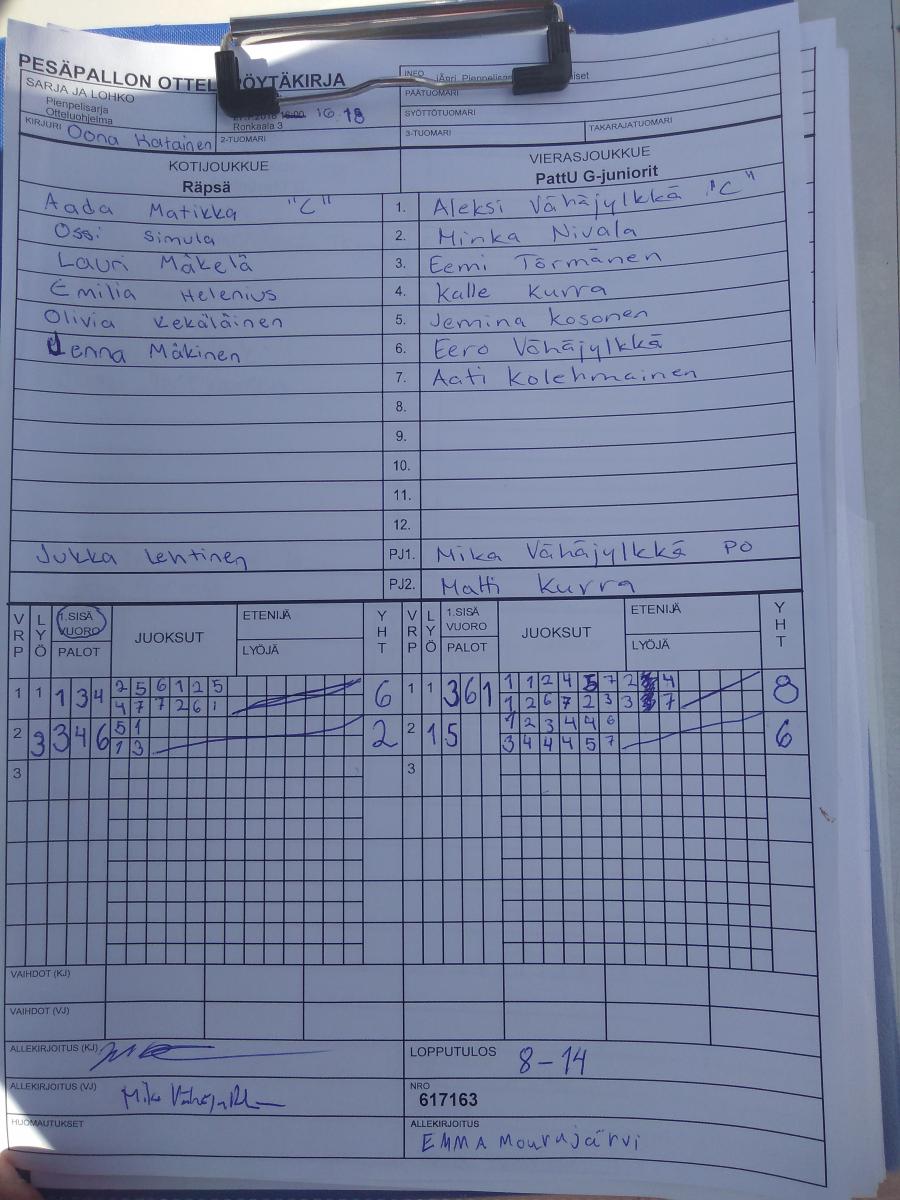 PESÄPALLON OTTEL ÖYTÄKIRJA
SARJA JA LOHKO
Pienpelisarja
Otteluohjelma
16:00 16.18
Ronkaala 3
INFO
PÄÄTUOMARI
SYÖTTÖTUOMARI
KIRJURI Oona Hatainen
2-TUOMARI
3-TUOMARI
TAKARAJATUOMARI
KOTIJOUKKUE
Räpsä
VIERASJOUKKUE
PattU G-juniorit
Aada Matikka "C" 1. Aleksi Vähäjylkkä "C"
Ossi Simula 2. Minka Nivala
Lauri Mäkelä 3. Eemi Törmänen
Emilia Helenius 4. Kalle Kurra
Olivia Kekäläinen 5. Jemina Kosonen
Jenna Mäkinen 6. Eero Vähäjylkkä
7. Aati Kolehmainen
8.
9.
10.
11.
12.
Jukka Lehtinen PJ1. Mika Vähäjylkkä PO
PJ2. Matti Kurra
VRP LYÖ 1.SISÄ VUORO PALOT JUOKSUT ETENIJÄ LYÖJÄ YHT VRP LYÖ 1.SISÄ VUORO PALOT JUOKSUT ETENIJÄ LYÖJÄ YHT
1 1 1 3 4 2 5 6 1 2 5 6 1 1 3 6 1 1 1 2 4 5 7 2 4 8
4 7 7 2 6 1 1 2 6 7 2 3 3 7
2 3 3 4 6 5 1 2 2 1 5 1 2 3 4 4 6 6
1 3 3 4 4 4 5 7
3 3
VAIHDOT (KJ)
VAIHDOT (VJ)
ALLEKIRJOITUS (KJ)
LOPPUTULOS 8-14
ALLEKIRJOITUS (VJ)
NRO
617163
HUOMAUTUKSET
ALLEKIRJOITUS
EMMA Mourujärvi